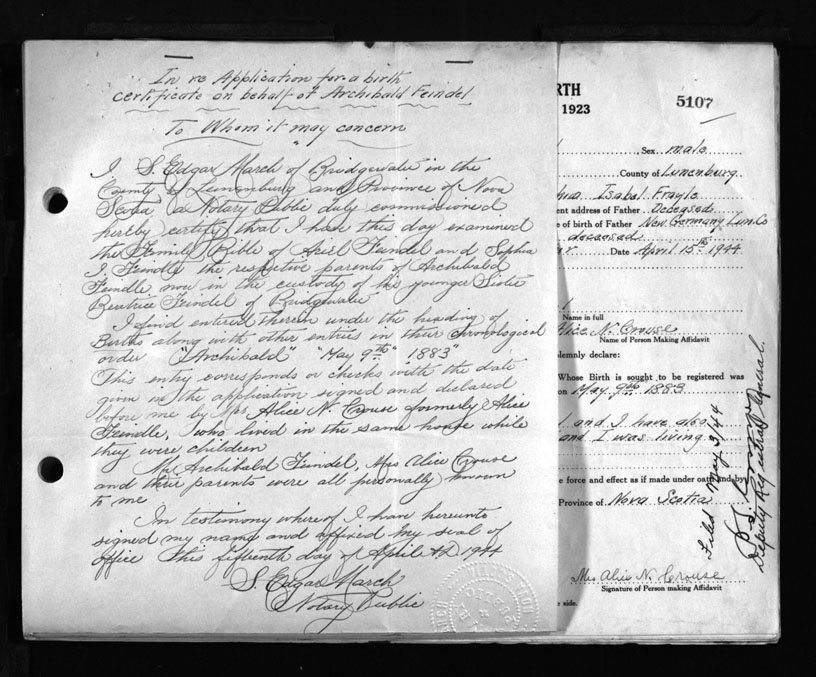 In re Application for a birth
certificate on behalf of Archibald Feindel
To Whom it may concern
I S. Edgar March of Bridgewater in the
County of Lunenburg and Province of Nova
Scotia a Notary Public duly commissioned
hereby certify that I have this day examined
the Family Bible of Aciel Feindel and Sophia
I. Feindle the respective parents of Archibald
Feindle now in the custody of his younger Sister
Beatrice Feindel of Bridgewater
I find entered therein under the heading of
Births along with other entries in their chronological
order "Archibald" "May 9th" 1883"
This entry corresponds or checks with the date
given in the application signed and declared
before me by Mrs Alice N. Crouse formerly Alice
Feindle, who lived in the same house while
they were children
Mr Archibald Feindel, Mrs Alice Crouse
and their parents were all personally known
to me
In testimony whereof I have hereunto
signed my name and affixed my seal of
office this fifteenth day of April A.D. 1944
S. Edgar March
Notary Public
RTH
1923
5107
Sex male
County of Lunenburg
Isabel Frayle
ent address of Father Deceased
e of birth of Father New Germany Lun.Co
deceased
Date April 15th 1944
Name in full
Alice N. Crouse
Name of Person Making Affidavit
olemnly declare:
Whose Birth is sought to be registered was
on May 9th 1883
and I have also
and I was living
e force and effect as if made under oath and by
Province of Nova Scotia
Mrs Alice N. Crouse
Signature of Person making Affidavit
e side.
Filed May 3/44
Deputy Registrar General.